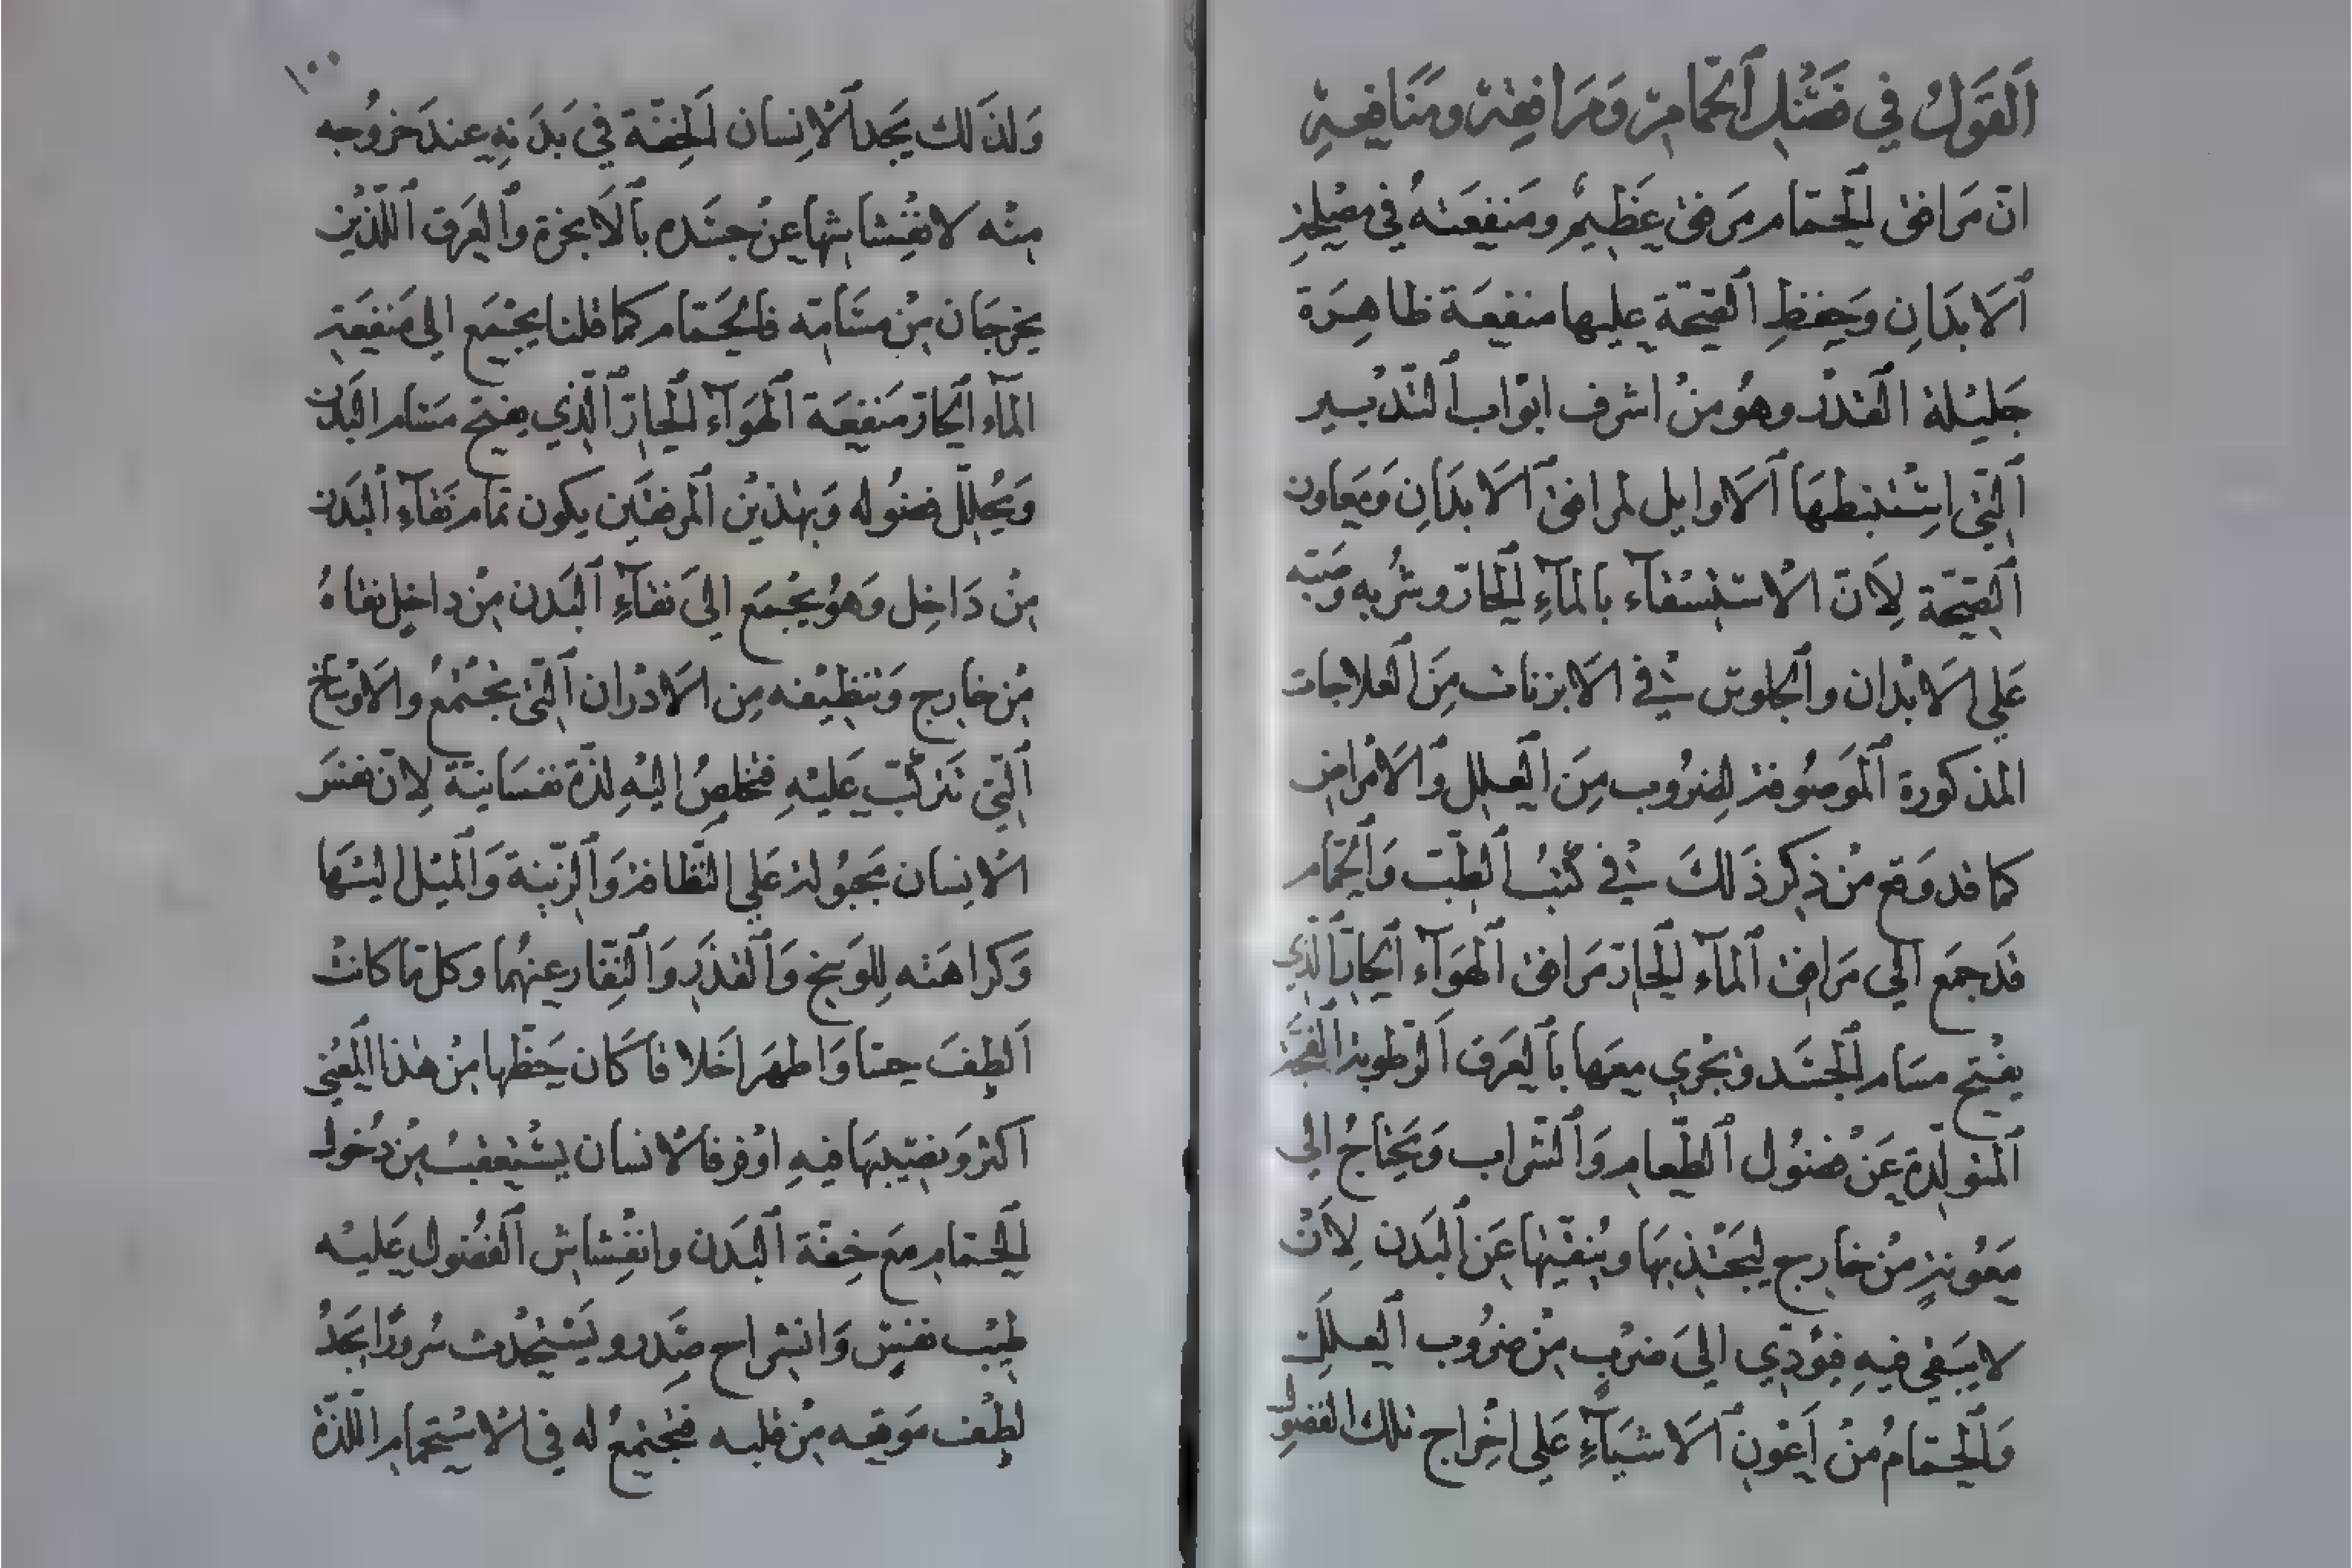 اَلقَولُ في فَضْلِ اَلحمّامِ وَمَرَافِقِهِ ومَنَافِعِهِ
انّ مَرَافق الحمّام مَرفق عَظيمٌ ومَنفعَته في مصْلحَة
اَلابدَانِ وَحفظِ الصّحّة عليها منفعَة ظاهِرَة
جَليْلة القدْر وهُو منْ اشرف ابوَاب التّدبْير
اَلّتي استْنبطهَا اَلاوايل لمرافق اَلابدَانِ وَمعَاون
اَلصّحّة لِاَنّ الاستسْقآء بالمآءِ الحارّ وشُربه وصَبّه
عَلي الابْدان والجلوس في الابزنات مِنَ العلاجات
المذكورة اَلموَصُوفة لِضرُوب مِنَ العِلل وَالامْراض
كما قد وَقع منْ ذِكر ذَلكَ في كتُب الطّبّ وَالحمّام
قَد جمَع الي مَرافق اَلمآء الحارّ مَرَافق اَلهوَآء الحارّ الّذي
يفْتح مسَام الجسَد وَيجْري معَها بالعَرق اَلرّطوبة الفجّة
اَلمتولّدة عَنْ فضُول اَلطّعام وَالشّراب وَيَحتاجُ الي
مَعُونةٍ مْن خارج ليجَتْذبهَا ويُنقّيْها عَن اَلبَدن لِاَنْ
لا يبَقي فيهِ فيؤدّي الي ضرْبٍ مِنْ ضرُوب اَلعِلَل
وَالحمّامُ منْ اَعْونِ اَلاشيَآءِ عَلي اخْراج تلك الفضول
١٠٠
وَلذَلك يَجد الْانِسان اَلخِفّة في بَدَنِهِ عندَ خرُوجه
مِنْه لانفْشاشها عنْ جسَده بالابخرة وَالعَرق اَللّذَيْن
يخرجَان مِنْ مسَامّه فالحمّام كما قلنا يجْمَع الي مَنفعَة
المآء الحارّ مَنفعَة اَلهوَآء الحارّ اَلّذي يفتح مسَام البَدن
وَيُحلّل فضُوله وَبهذيْن اَلمرفقَين يكون تمام نَقآءِ اَلبَدن
مِنْ دَاخِل وَهُو يجْمَع الي نقآءِ اَلبَدن مِنْ داخِل نقاهُ
مْن خارج وَتنظِيْفه مِن الادْران اَلّتي تجْتمعُ والاوْساخ
اَلّتي تتركّب عَليْهِ فتخلصُ اليْهِ لذّة نفسَانيّة لِانّ نفسَ
الْانِسان مَجبُولة عَلي النّظافة وَالزّينة وَالميْل اليْهَا
وَكراهَته لِلوَسخ وَالقذَر وَالنِّفار عنهُما وكلّ ما كانتْ
اَلطِفَ حسّا وَاطهرَ اخلاقا كَان حَظّها مِنْ هذا المعْني
اكثر وَنصيْبهَا فيهِ اوفر فالْانسان يسْتعقبُ مِنْ دُخول
الحمّام مَع خِفّة اَلبَدن وانفْشاش اَلفضُول عَليْه
طِيْب نفسٍ وَانشراح صَدر ويَسْتحْدث سُرورًا يجَدُ
لطفْ مَوقعه مِنْ قلبه فتجتمعُ له في الْاستْحمام اللّذّة